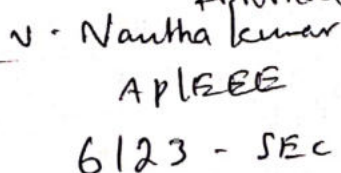 N. Nantha kumar
AP/EEE
6123 - SEC